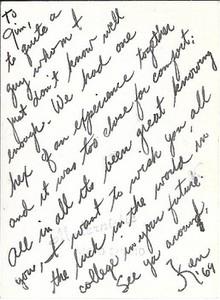 To Jim,
to quite a
guy whom I
just don't know well
enough. We had one
hex of an experience together
and it was too close for comfort:
All in all it's been great knowing
you, I want to wish you all
the luck in the world in
college in your future
See ya around,
Ken
'69